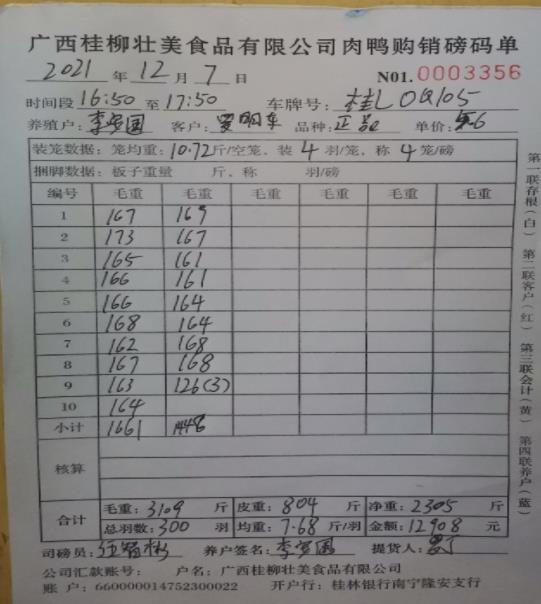 广西桂柳壮美食品有限公司肉鸭购销磅码单
2021 年 12 月 7 日 N01.0003356
时间段 16:50 至 17:50 车牌号: 桂L0Q105
养殖户: 李 国 客户: 罗明车 品种: 正品 单价: 5.6
装笼数据: 笼均重: 10.72 斤/空笼、装 4 羽/笼、称 4 笼/磅
捆脚数据: 板子重量 斤、称 羽/磅
编号 毛重 毛重 毛重 毛重 毛重 毛重
1 167 169
2 173 167
3 165 161
4 166 161
5 166 164
6 168 164
7 162 168
8 167 168
9 163 126(3)
10 164
小计 1661 1448
核算
合计 毛重: 3109 斤 皮重: 804 斤 净重: 2305 斤
总羽数: 300 羽 均重: 7.68 斤/羽 金额: 12908 元
司磅员: 养户签名: 李 国 提货人:
公司汇款账号: 户名: 广西桂柳壮美食品有限公司
账 户: 660000014752300022 开户行: 桂林银行南宁隆安支行
第一联存根(白) 第二联客户(红) 第三联会计(黄) 第四联养户(蓝)